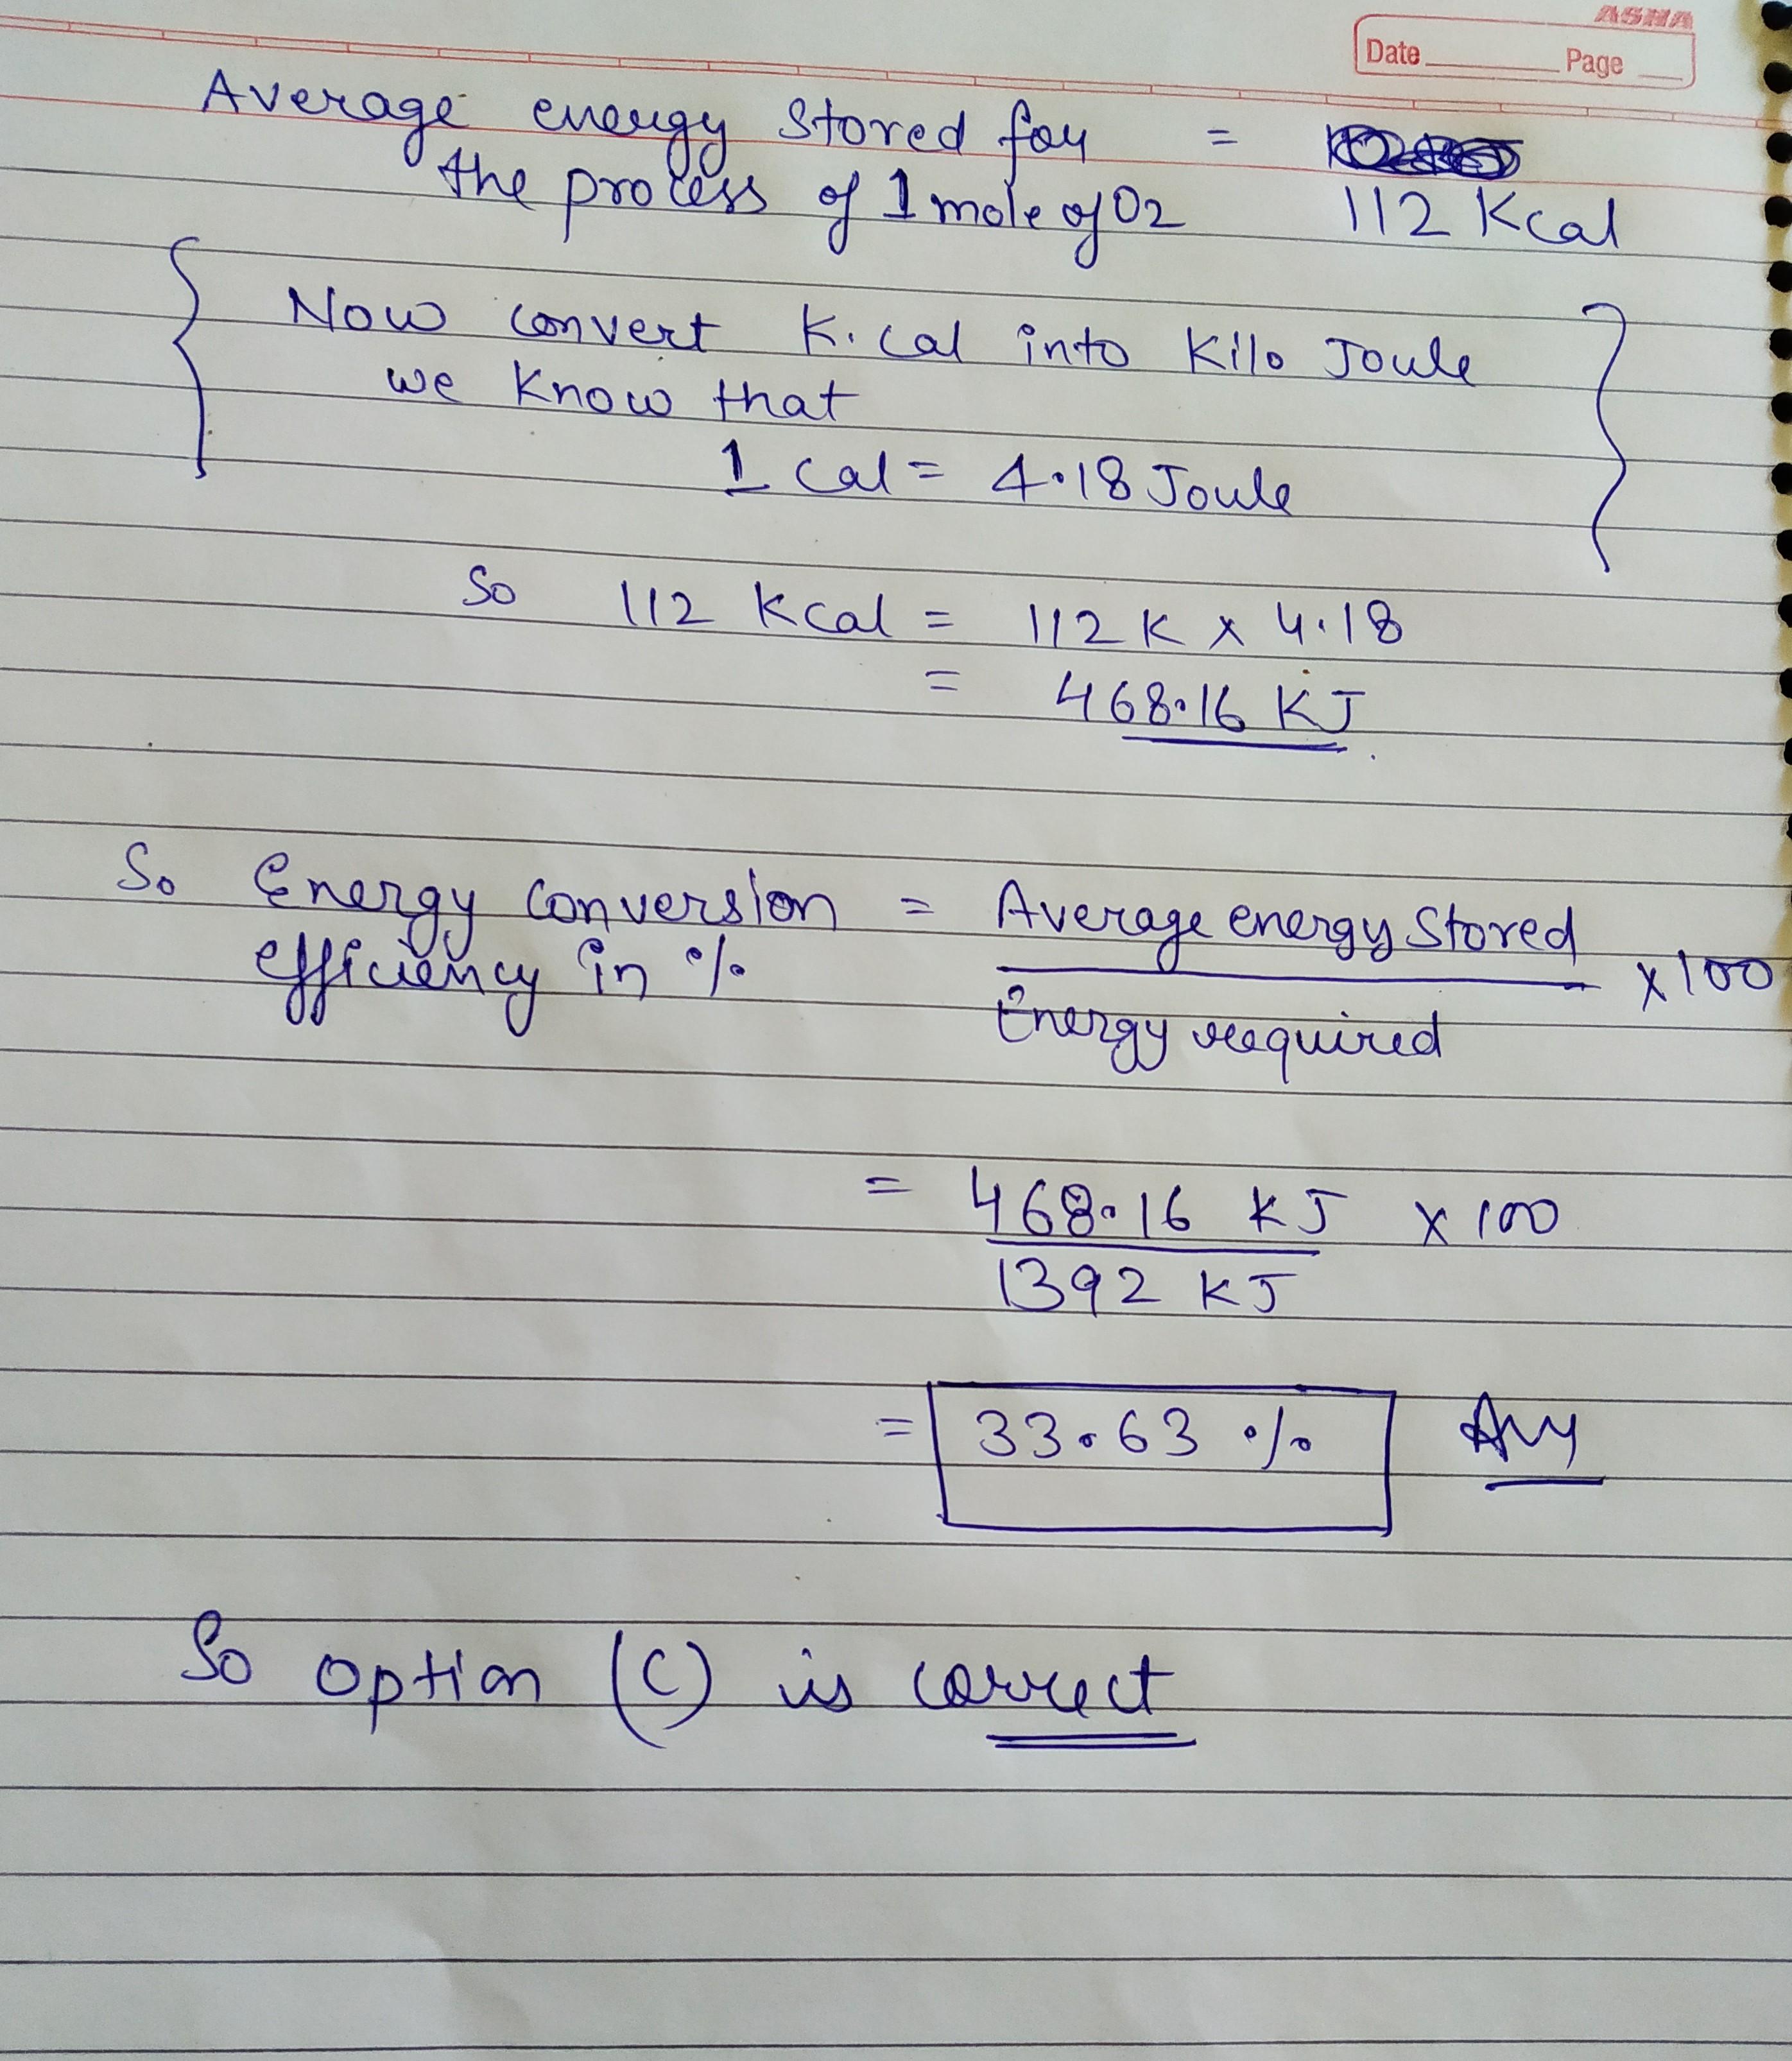 ASHA
Date Page
Average energy Stored for =
the process of 1 mole of O2 112 Kcal
Now convert K.cal into Kilo Joule
we know that
1 Cal = 4.18 Joule
So 112 Kcal = 112 K x 4.18
= 468.16 KJ
So Energy conversion = Average energy Stored
efficiency in % x 100
Energy required
= 468.16 KJ x 100
1392 KJ
= 33.63 % Ans
So option (C) is correct